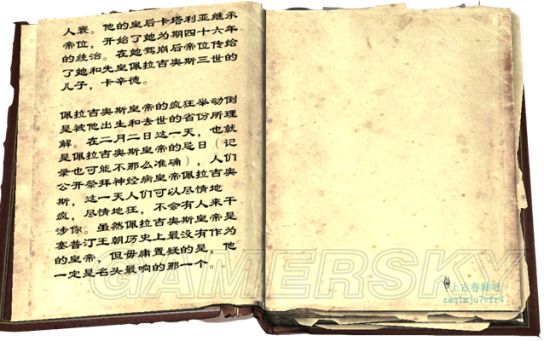 人衰。他的皇后卡塔利亚继承
帝位，开始了她为期四十六年
的统治。在她驾崩后帝位传给
了她和先皇佩拉吉奥斯三世的
儿子，卡辛德。
佩拉吉奥斯皇帝的疯狂举动倒
是被他出生和去世的省份所理
解。在二月二日这一天，也就
是佩拉吉奥斯皇帝的忌日（记
录也可能不那么准确），人们
公开祭拜神经病皇帝佩拉吉奥
斯，这一天人们可以尽情地
疯，尽情地狂，不会有人来干
涉你。虽然佩拉吉奥斯皇帝是
塞普汀王朝历史上最没有作为
的皇帝，但毋庸置疑的是，他
一定是名头最响的那一个。
GAMERSKY
上古卷轴吧
zaq1mju7vfr4